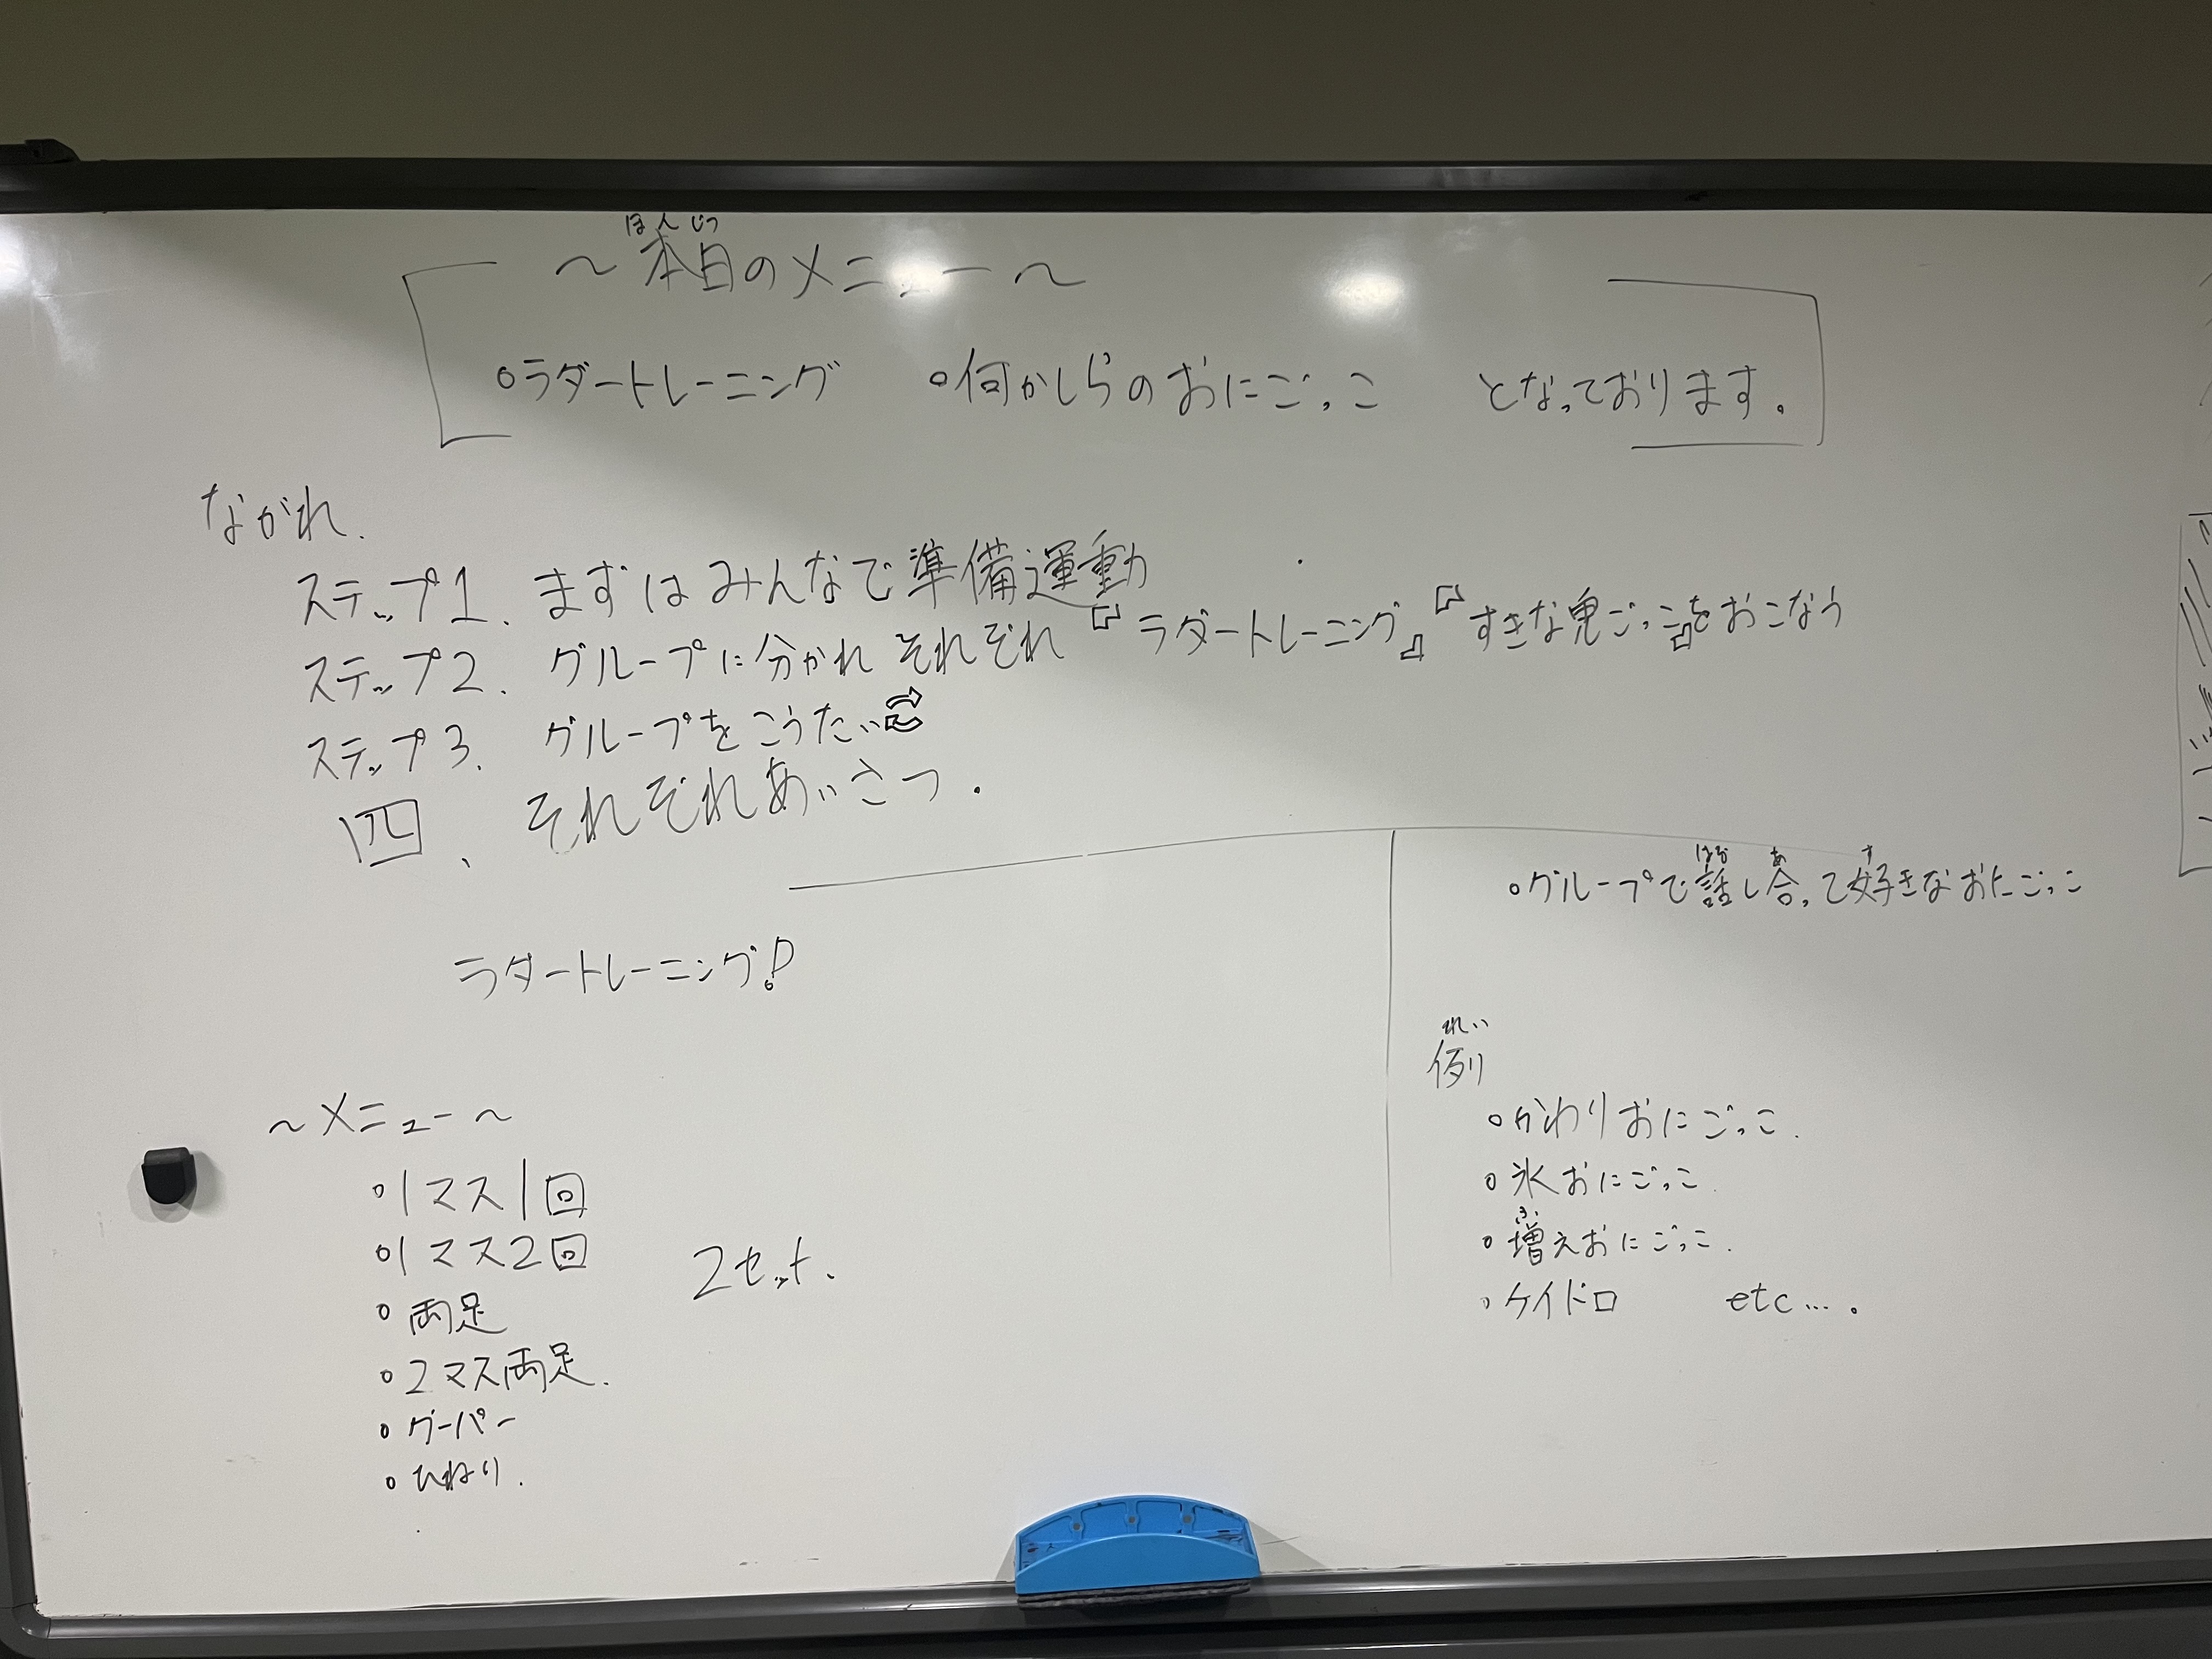 ほんじつ
～本日のメニュー～
○ラダートレーニング ○何かしらのおにごっこ となっております。
ながれ.
ステップ1. まずはみんなで準備運動
ステップ2. グループに分かれ それぞれ『ラダートレーニング』『すきな鬼ごっこ』をおこなう
ステップ3. グループをこうたい
四、それぞれあいさつ.
ラダートレーニング!
～メニュー～
○1マス1回
○1マス2回
○両足
○2マス両足.
○グーパー
○ひねり.
2セット.
はな あ す
○グループで話し合って好きなおにごっこ
れい
例
○かわりおにごっこ.
○氷おにごっこ.
ふ
○増えおにごっこ.
○ケイドロ etc….